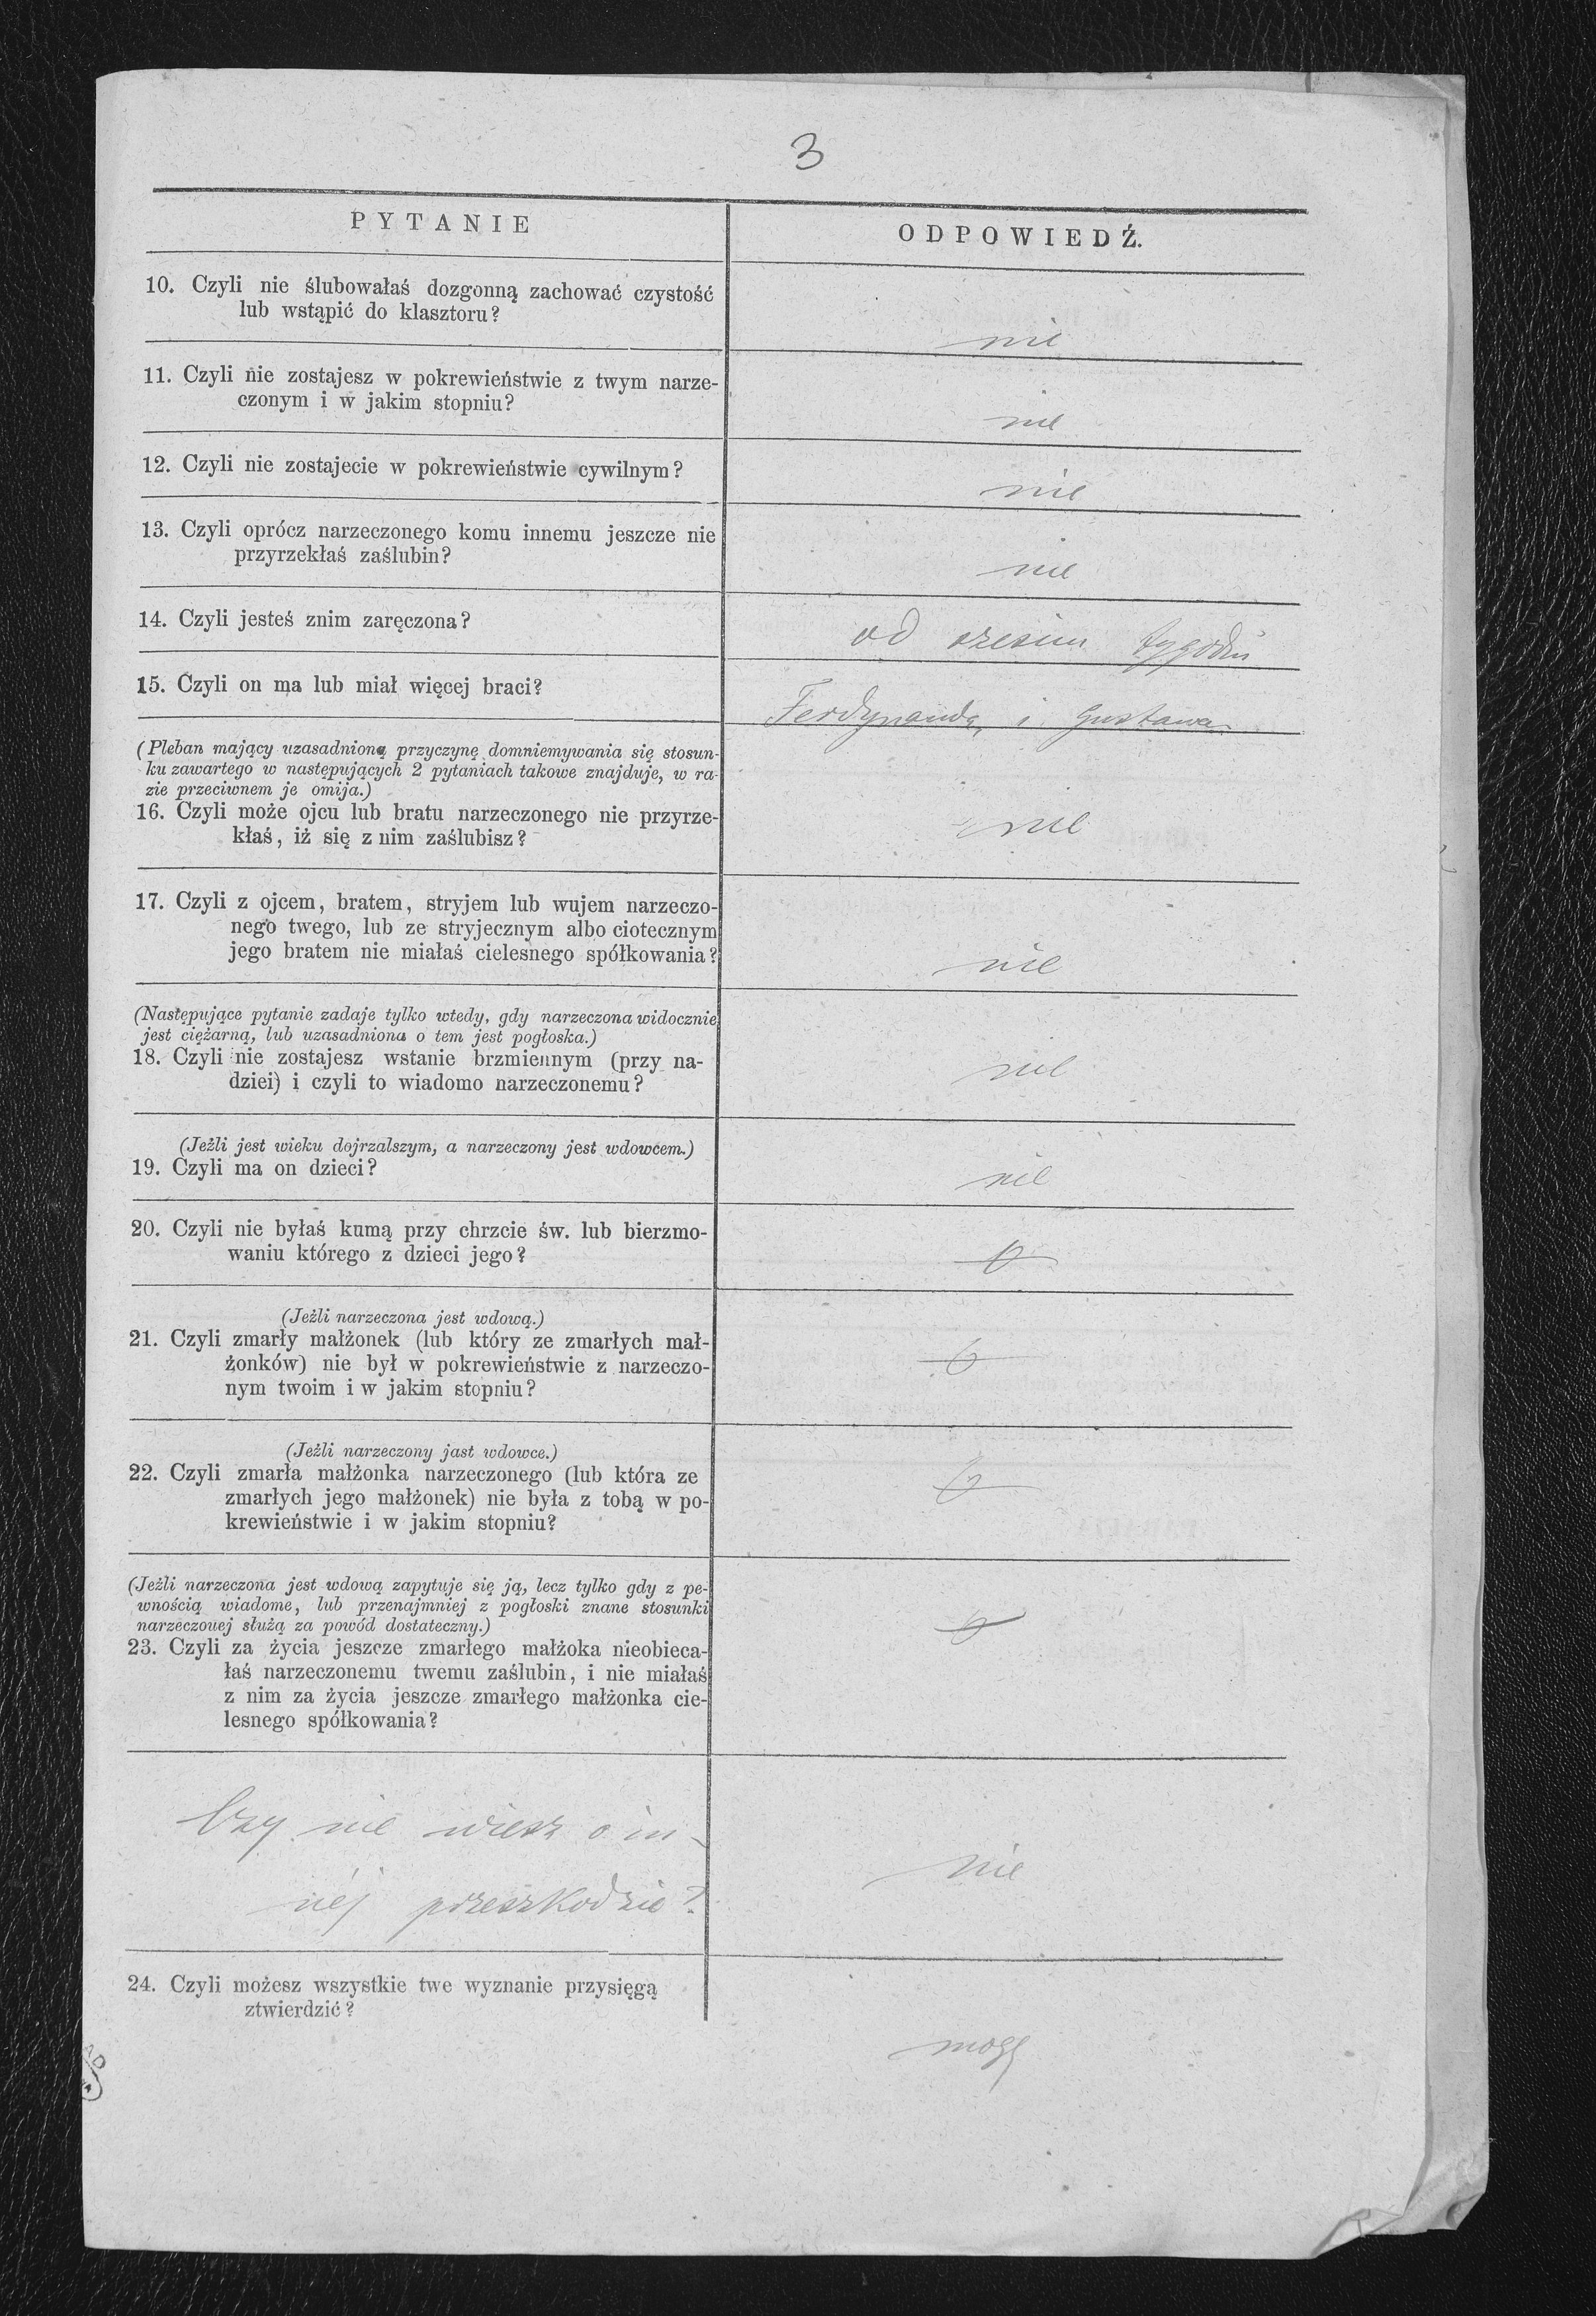 3
PYTANIE
ODPOWIEDŹ.
10. Czyli nie ślubowałaś dozgonną zachować czystość
lub wstąpić do klasztoru?
nie
11. Czyli nie zostajesz w pokrewieństwie z twym narze-
czonym i w jakim stopniu?
nie
12. Czyli nie zostajecie w pokrewieństwie cywilnym?
nie
13. Czyli oprócz narzeczonego komu innemu jeszcze nie
przyrzekłaś zaślubin?
nie
14. Czyli jesteś znim zaręczona?
od tygodni
15. Czyli on ma lub miał więcej braci?
Ferdynanda, i Gustawa
(Pleban mający uzasadnioną przyczynę domniemywania się stosun-
ku zawartego w następujących 2 pytaniach takowe znajduje, w ra-
zie przeciwnem je omija.)
16. Czyli może ojcu lub bratu narzeczonego nie przyrze-
kłaś, iż się z nim zaślubisz?
nie
17. Czyli z ojcem, bratem, stryjem lub wujem narzeczo-
nego twego, lub ze stryjecznym albo ciotecznym
jego bratem nie miałaś cielesnego spółkowania?
nie
(Następujące pytanie zadaje tylko wtedy, gdy narzeczona widocznie
jest ciężarną, lub uzasadniona o tem jest pogłoska.)
18. Czyli nie zostajesz wstanie brzmiennym (przy na-
dziei) i czyli to wiadomo narzeczonemu?
nie
(Jeżli jest wieku dojrzalszym, a narzeczony jest wdowcem.)
19. Czyli ma on dzieci?
nie
20. Czyli nie byłaś kumą przy chrzcie św. lub bierzmo-
waniu którego z dzieci jego?
(Jeżli narzeczona jest wdową.)
21. Czyli zmarły małżonek (lub który ze zmarłych mał-
żonków) nie był w pokrewieństwie z narzeczo-
nym twoim i w jakim stopniu?
(Jeżli narzeczony jast wdowce.)
22. Czyli zmarła małżonka narzeczonego (lub która ze
zmarłych jego małżonek) nie była z tobą w po-
krewieństwie i w jakim stopniu?
(Jeżli narzeczona jest wdową zapytuje się ją, lecz tylko gdy z pe-
wnością wiadome, lub przenajmniej z pogłoski znane stosunki
narzeczonej służą za powód dostateczny.)
23. Czyli za życia jeszcze zmarłego małżoka nieobieca-
łaś narzeczonemu twemu zaślubin, i nie miałaś
z nim za życia jeszcze zmarłego małżonka cie-
lesnego spółkowania?
Czy nie wiesz o in-
néj przeszkodzie?
nie
24. Czyli możesz wszystkie twe wyznanie przysięgą
ztwierdzić?
mogę